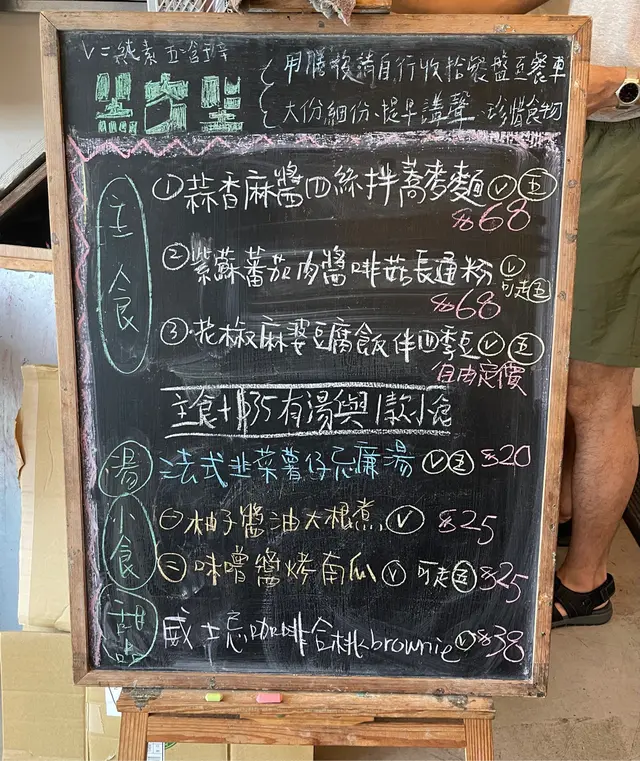 V=純素 五=含五辛
用膳後請自行收拾餐盤至餐車
大份細份、提早講聲、珍惜食物
主食
① 蒜香麻醬四絲拌蕎麥麵 V 五
$68
② 紫蘇蕃茄肉醬啡菇長通粉 V 可走五
$68
③ 花椒麻婆豆腐飯伴四季豆 V 五
自由定價
主食+$35有湯與1款小食
湯
法式韭菜薯仔忌廉湯 V 五 $20
小食
㊀ 柚子醬油大根煮 V $25
㊁ 味噌醬烤南瓜 V 可走五 $25
甜品
威士忌咖啡合桃brownie V $38